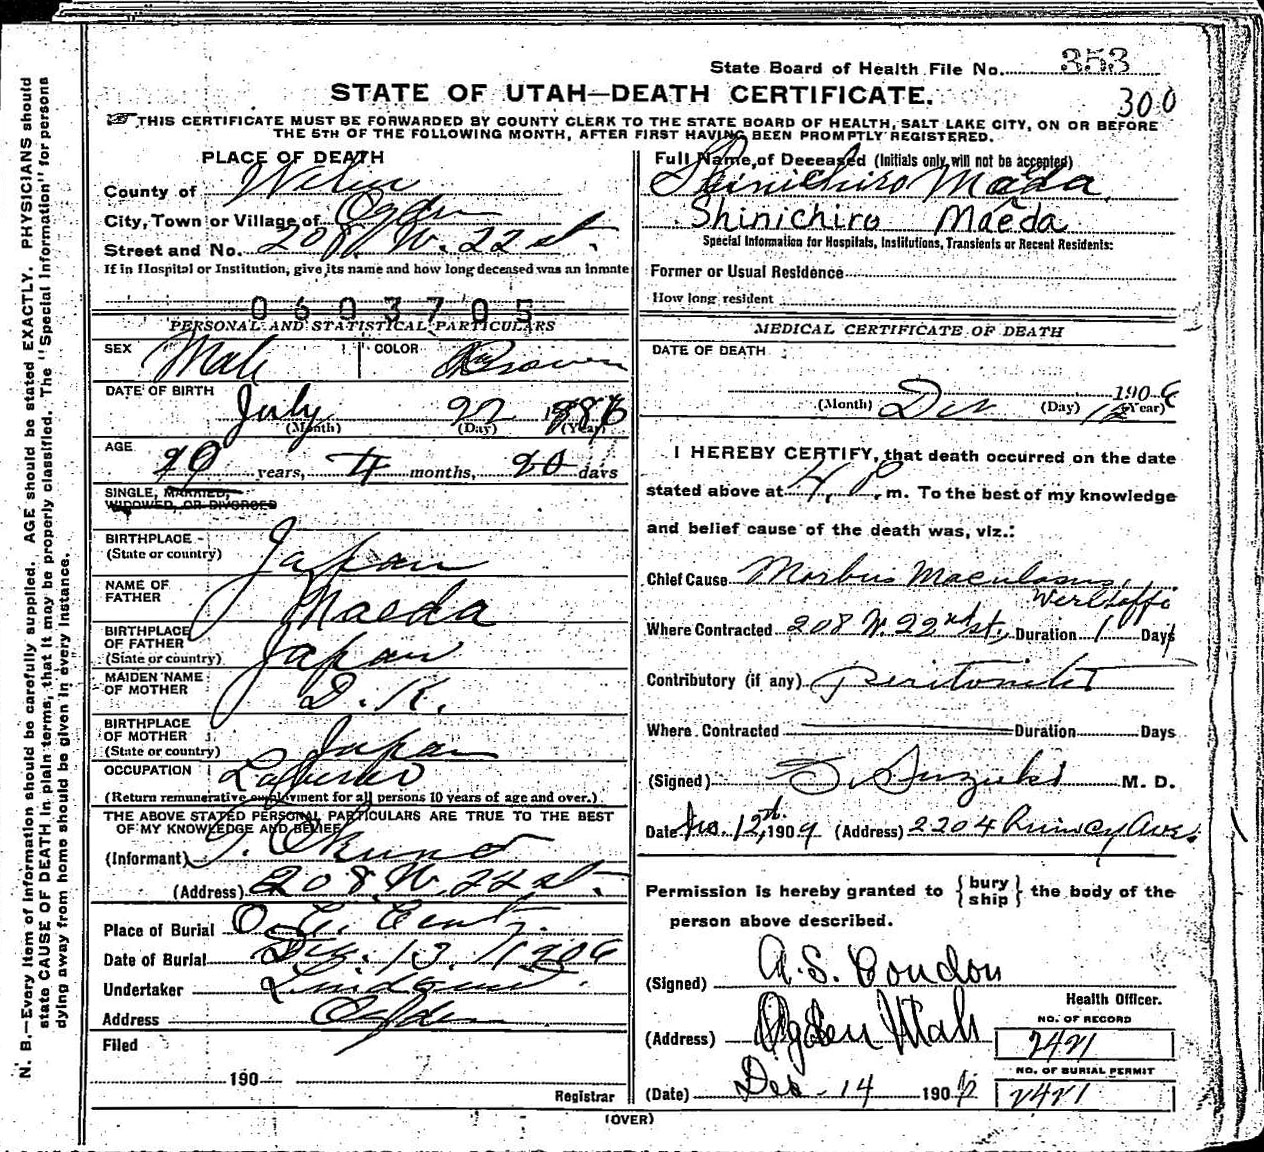 State Board of Health File No. 353
300
STATE OF UTAH—DEATH CERTIFICATE.
THIS CERTIFICATE MUST BE FORWARDED BY COUNTY CLERK TO THE STATE BOARD OF HEALTH, SALT LAKE CITY, ON OR BEFORE
THE 5TH OF THE FOLLOWING MONTH, AFTER FIRST HAVING BEEN PROMPTLY REGISTERED.
PLACE OF DEATH
County of Weber
City, Town or Village of Ogden
Street and No. 208 W. 22 st.
If in Hospital or Institution, give its name and how long deceased was an inmate
0603705
PERSONAL AND STATISTICAL PARTICULARS
SEX Male COLOR Brown
DATE OF BIRTH July 22 1886
(Month) (Day) (Year)
AGE
years, 4 months, 20 days
SINGLE, MARRIED,
WIDOWED, OR DIVORCED
BIRTHPLACE
(State or country) Japan
NAME OF
FATHER Maeda
BIRTHPLACE
OF FATHER
(State or country) Japan
MAIDEN NAME
OF MOTHER D. K.
BIRTHPLACE
OF MOTHER
(State or country) Japan
OCCUPATION
(Return remunerative employment for all persons 10 years of age and over.)
THE ABOVE STATED PERSONAL PARTICULARS ARE TRUE TO THE BEST
OF MY KNOWLEDGE AND BELIEF
(Informant) Okuno
(Address) 208 W. 22 st.
Place of Burial
Date of Burial Dec. 13. 1906
Undertaker Lindquist
Address Ogden
Filed
190
Registrar
Full Name, of Deceased (Initials only will not be accepted)
Shinichiro Mæda
Shinichiro Maeda
Special Information for Hospitals, Institutions, Transients or Recent Residents:
Former or Usual Residence
How long resident
MEDICAL CERTIFICATE OF DEATH
DATE OF DEATH
Dec 12 1906
(Month) (Day) (Year)
I HEREBY CERTIFY, that death occurred on the date
stated above at 4. P. m. To the best of my knowledge
and belief cause of the death was, viz.:
Chief Cause Morbus Maculosus,
Werlhoffi
Where Contracted 208 W. 22nd st. Duration 1 Days
Contributory (if any) Peritonitis
Where Contracted Duration Days
(Signed) S. Suzuki M. D.
Date 12th. 190 (Address) 2204 Quincy Ave.
Permission is hereby granted to { bury ship } the body of the
person above described.
(Signed) A. S. Condon
Health Officer.
(Address) Ogden Utah
NO. OF RECORD
2421
NO. OF BURIAL PERMIT
(Date) Dec - 14 1906
2421
(OVER)
N. B.—Every item of information should be carefully supplied. AGE should be stated EXACTLY. PHYSICIANS should
state CAUSE OF DEATH in plain terms, that it may be properly classified. The "Special Information" for persons
dying away from home should be given in every instance.